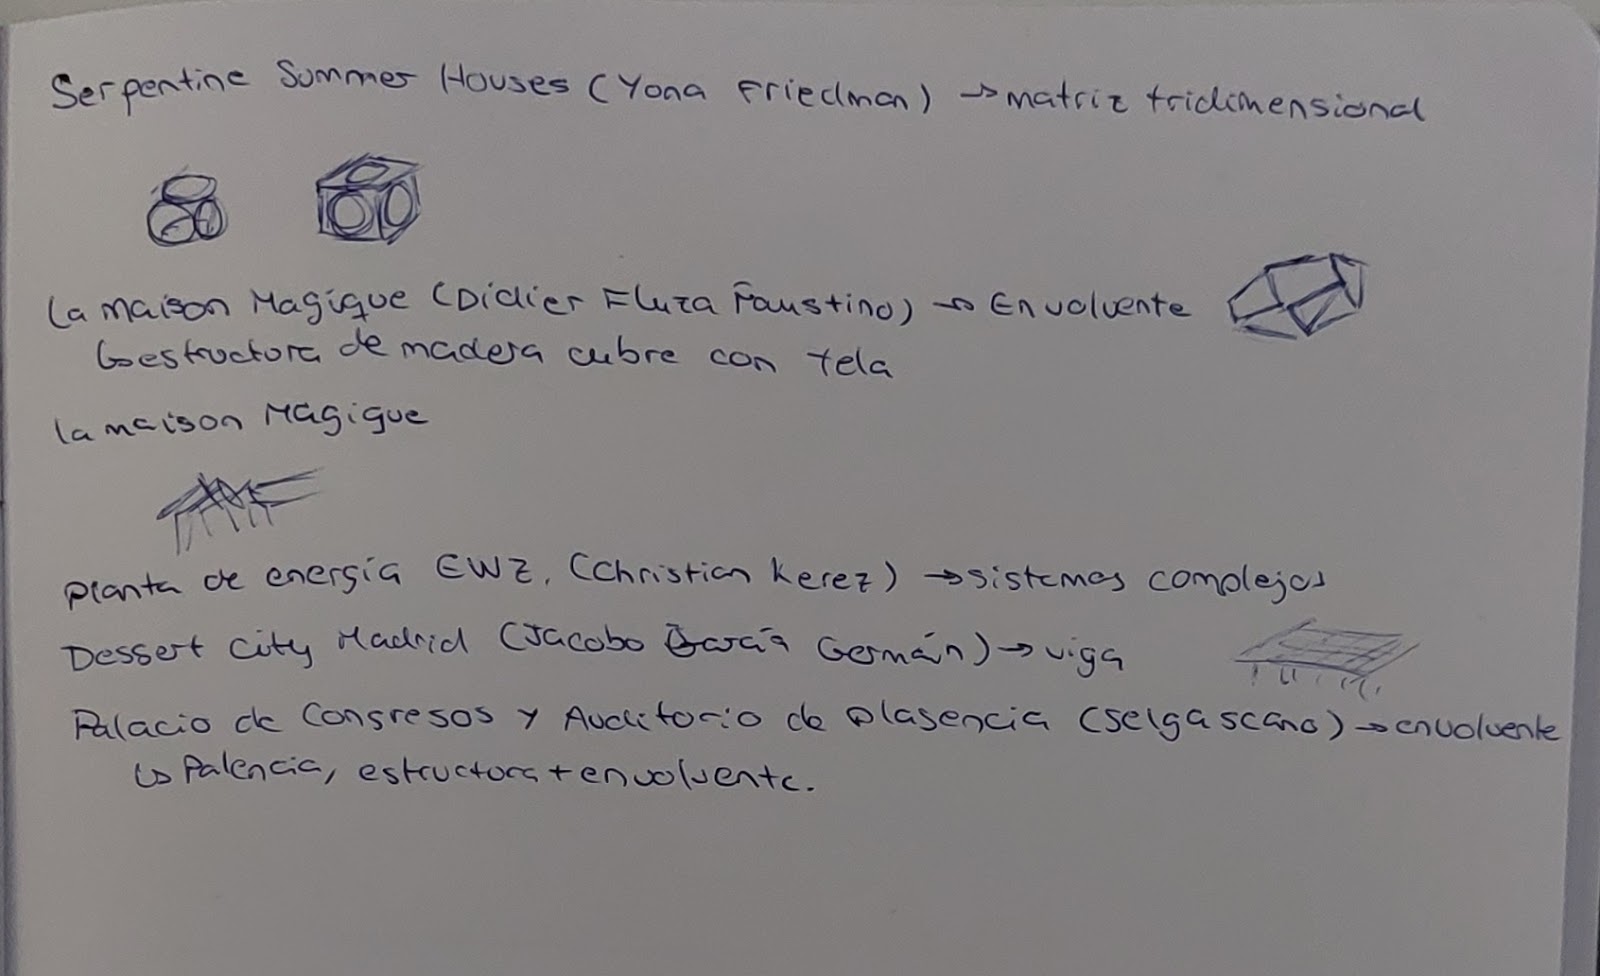 Serpentine Summer Houses (Yona Friedman) → matriz tridimensional
la maison Magique (Didier Fiuza Faustino) → Envolvente
↳ estructura de madera cubre con tela
la maison Magique
planta de energía EWZ, (Christian Kerez) → sistemas complejos
Dessert City Madrid (Jacobo García Germán) → viga
Palacio de Congresos y Auditorio de Plasencia (selgascano) → envolvente
↳ Palencia, estructura + envolvente.